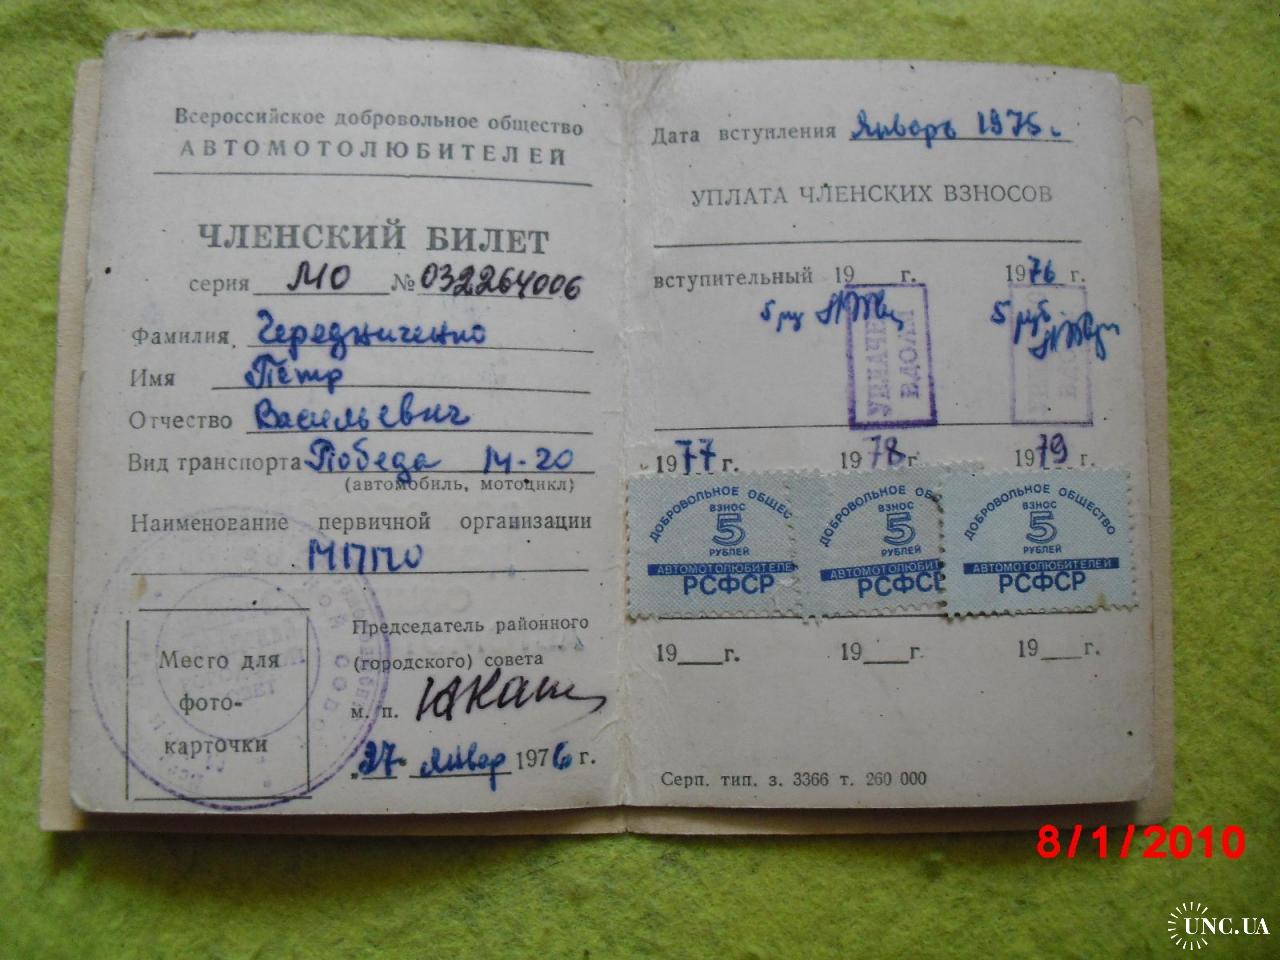 Всероссийское добровольное общество
АВТОМОТОЛЮБИТЕЛЕЙ
ЧЛЕНСКИЙ БИЛЕТ
серия МО № 032264006
Фамилия Чередниченко
Имя Пётр
Отчество Васильевич
Вид транспорта Победа М-20
(автомобиль, мотоцикл)
Наименование первичной организации
МППО
Место для
фото-
карточки
Председатель районного
(городского) совета
м. п.
"27" январ 1976 г.
Дата вступления Январь 1975 г.
УПЛАТА ЧЛЕНСКИХ ВЗНОСОВ
вступительный 19 г. 1976 г.
5 руб
УПЛАЧЕ
ВДОАМ
1977 г. 1978 г. 1979
ДОБРОВОЛЬНОЕ ОБЩЕС
ВЗНОС
5
РУБЛЕЙ
АВТОМОТОЛЮБИТЕЛЕ
РСФСР
ДОБРОВОЛЬНОЕ ОБ
ВЗНОС
5
РУБЛЕЙ
АВТОМОТОЛЮБИТЕ
РСФСР
ДОБРОВОЛЬНОЕ ОБЩЕСТВО
ВЗНОС
5
РУБЛЕЙ
АВТОМОТОЛЮБИТЕЛЕЙ
РСФСР
19 г. 19 г. 19 г.
Серп. тип. з. 3366 т. 260 000
8/1/2010
UNC.UA